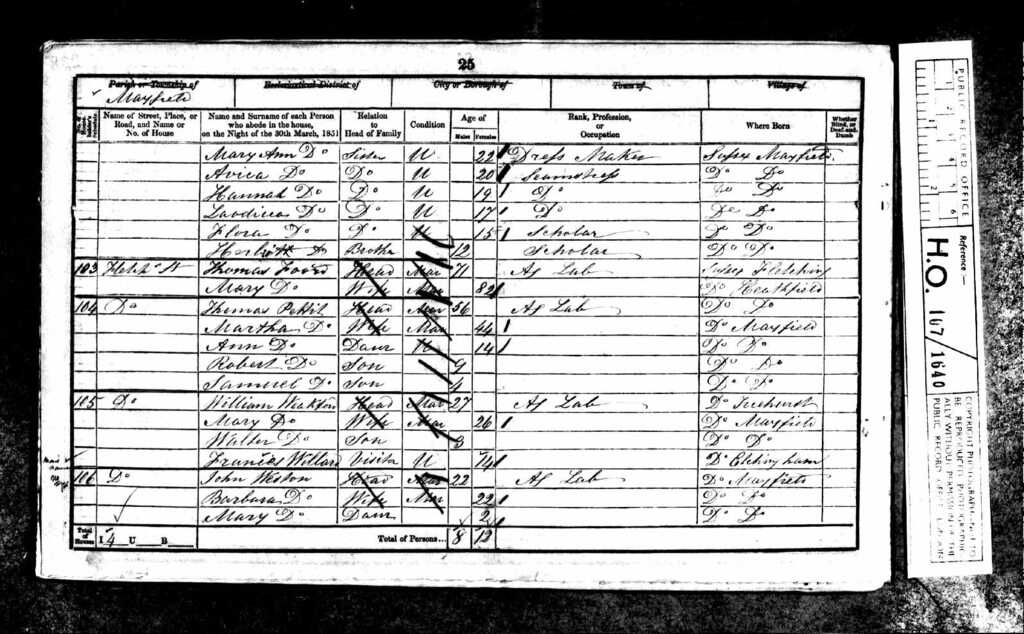 25
Parish or Township of
Ecclesiastical District of
City or Borough of
Town of
Village of
Mayfield
Name of Street, Place, or Road, and Name or No. of House
Name and Surname of each Person who abode in the house, on the Night of the 30th March, 1851
Relation to Head of Family
Condition
Age of
Males
Females
Rank, Profession, or Occupation
Where Born
Whether Blind, or Deaf-and-Dumb
Mary Ann Do Sister U 22 Dress Maker Sussex Mayfield
Avica Do Do U 20 Seamstress Do Do
Hannah Do Do U 19 Do Do Do
Laodicea Do Do U 17 Do Do Do
Flora Do Do U 15 Scholar Do Do
Do Brother 12 Scholar Do Do
103 St Thomas Foord Head Mar 71 Ag Lab Sussex Fletching
Mary Do Wife Mar 82 Do Heathfield
104 Do Thomas Pettit Head Mar 56 Ag Lab Do Do
Martha Do Wife Mar 44 Do Mayfield
Ann Do Daur U 14 Do Do
Robert Do Son 9 Do Do
Samuel Do Son 4 Do Do
105 Do William Head Mar 27 Ag Lab Do Ticehurst
Mary Do Wife Mar 26 Do Mayfield
Walter Do Son 3 Do Do
Frances Willard Visitor U 14 Do Etchingham
106 Do John Weston Head Mar 22 Ag Lab Do Mayfield
Barbara Do Wife Mar 22 Do Do
Mary Do Daur 2 Do Do
Total of Houses I 4 U B Total of Persons... 8 12
PUBLIC RECORD OFFICE
Reference:-
H.O. 107/1640
COPYRIGHT PHOTOGRAPH - NOT TO BE REPRODUCED PHOTOGRAPHICALLY WITHOUT PERMISSION OF THE PUBLIC RECORD OFFICE, LONDON